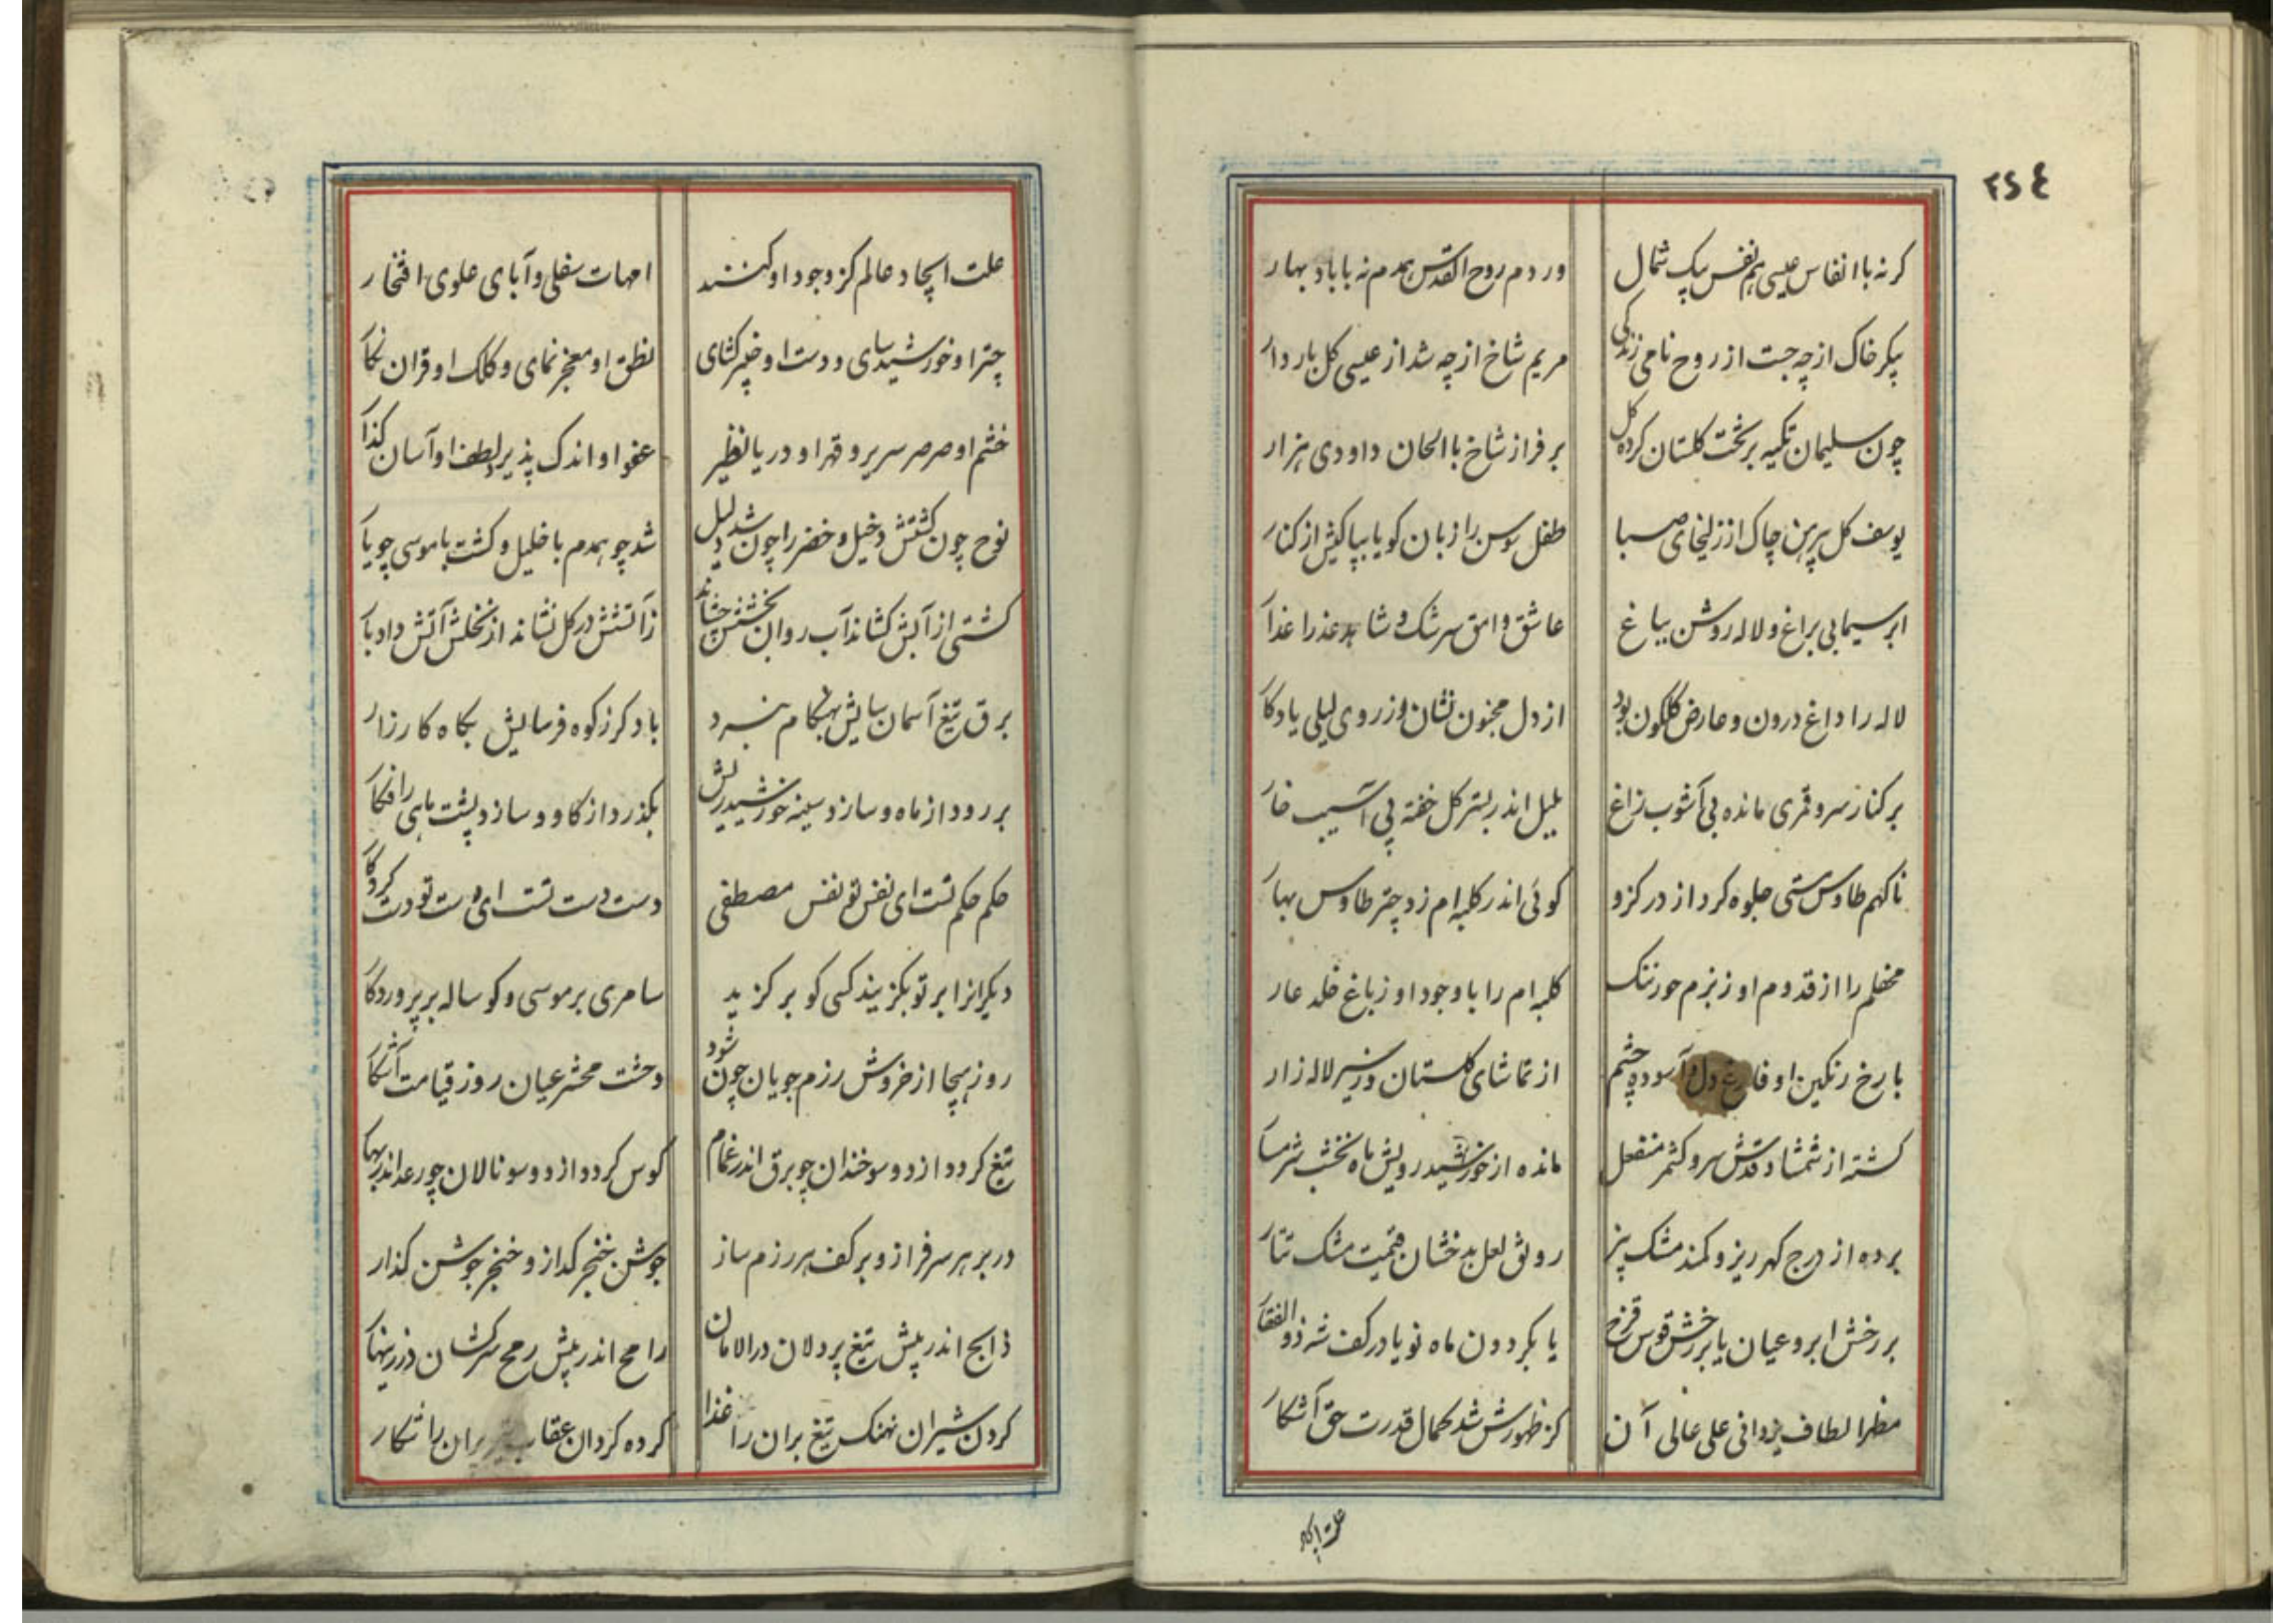 ۲۵٤
کر نه با انفاس عیسی هم نفس پیک شمال
ور دم روح القدس همدم نه با باد بهار
پیکر خاک از چه جست از روح نامی زندگی
مریم شاخ از چه شد از عیسی کل باردار
چون سلیمان تکیه بر تخت کلستان کرده کل
بر فراز شاخ با الحان داودی هزار
یوسف کل پیرهن چاک از زلیخای صبا
طفل سوسن را زبان کویا بپاکیش از کنار
ابر سیمابی براغ و لاله روشن بباغ
عاشق وامق سرشک و شاهد عذرا عذار
لاله را داغ درون و عارض کلکون بود
از دل مجنون نشان وز روی لیلی یادکار
بر کنار سرو قمری مانده بی آشوب زاغ
بلبل اندر بستر کل خفته بی آسیب خار
ناکهم طاوس مستی جلوه کرد از در کزو
کوئی اندر کلبه ام زد چتر طاوس بهار
محفلم را از قدوم او ز بزم حور ننک
کلبه ام را با وجود او ز باغ خلد عار
با رخ رنکین او فارغ دل و آسوده چشم
از تماشای کلستان وز سیر لاله زار
کشته از شمشاد قدش سرو کشمر منفعل
مانده از خورشید رویش ماه نخشب شرمسار
برده از درج کهر ریز و کمند مشک بیز
رونق لعل بدخشان قیمت مشک تتار
بر رخش ابرو عیان یا بر رخش قوس قزح
یا بکردون ماه نو یا در کف شه ذوالفقار
مظهر الطاف یزدانی علی عالی آن
کز ظهورش شد کمال قدرت حق آشکار
علت ایجاد
علت ایجاد عالم کز وجود او کنند
امهات سفلی و آبای علوی افتخار
چتر او خورشید سای و دست او خیبر کشای
نطق او معجز نمای و کلک او قران نکار
خشم او صرصر سریر و قهر او دریا نظیر
عفو او اندک پذیر و لطف او آسان کذار
نوح چون کشتش دخیل و خضر را چون شد دلیل
شد چو همدم با خلیل و کشت با موسی چو یار
کشتی از آبش کشاند آب روان بخشش چشاند
ز آتشش در کل نشاند از نخلش آتش داد بار
برق تیغ آسمان سایش بهنکام نبرد
باد کرز کوه فرسایش بکاه کارزار
بر رود از ماه و سازد سینه خورشید ریش
بکذرد از کاو و سازد پشت ماهی را فکار
حکم حکم تست ای نفس تو نفس مصطفی
دست دست تست ای دست تو دست کردکار
دیکرانرا بر تو بکزیند کسی کو بر کزید
سامری بر موسی و کوساله بر پروردکار
روز هیجا از خروش رزم جویان چون شود
وحشت محشر عیان روز قیامت آشکار
تیغ کردد از دو سو خندان چو برق اندر غمام
کوس کردد از دو سو نالان چو رعد اندر بهار
در بر هر سرفراز و بر کف هر رزم ساز
جوشن خنجر کداز و خنجر جوشن کذار
ذابح اندر پیش تیغ پردلان در الامان
رامح اندر پیش رمح سرکشان در زینهار
کردن شیران نهنک تیغ بران را غذا
کرده کردان عقاب تیر پران را شکار